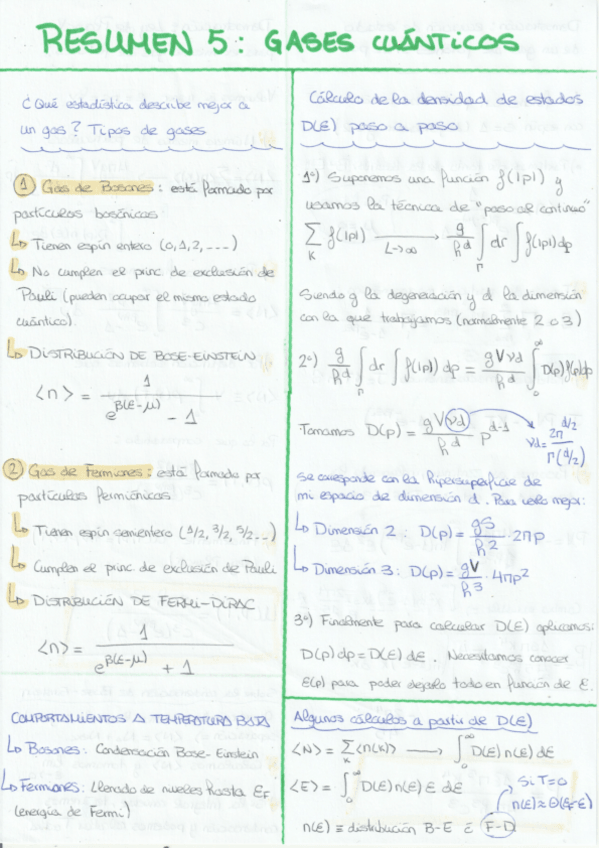 RESUMEN 5: GASES CUÁNTICOS
¿Qué estadística describe mejor a
un gas? Tipos de gases
① Gas de Bosones: está formado por
partículas bosónicas
↳ Tienen espín entero (0, 1, 2, ...)
↳ No cumplen el princ. de exclusión de
Pauli (pueden ocupar el mismo estado
cuántico).
↳ DISTRIBUCIÓN DE BOSE-EINSTEIN
<n> = 1 / (e^{β(E-μ)} - 1)
② Gas de Fermiones: está formado por
partículas fermiónicas
↳ Tienen espín semientero (1/2, 3/2, 5/2...)
↳ Cumplen el princ. de exclusión de Pauli
↳ DISTRIBUCIÓN DE FERMI-DIRAC
<n> = 1 / (e^{β(E-μ)} + 1)
COMPORTAMIENTOS A TEMPERATURA BAJA
↳ Bosones: Condensación Bose-Einstein
↳ Fermiones: Llenado de niveles hasta E_F
(energía de Fermi)
Cálculo de la densidad de estados
D(E) paso a paso
1º) Suponemos una función f(|p|) y
usamos la técnica de "paso al continuo"
∑_K f(|p|) ⟶ (L→∞) g/h^d ∫_Γ dr ∫ f(|p|) dp
Siendo g la degeneración y d la dimensión
con la que trabajamos (normalmente 2 o 3)
2º) g/h^d ∫_Γ dr ∫ f(|p|) dp = gVνd/h^d ∫_0^∞ D(p) f(p) dp
Tomamos D(p) = gV(νd)/h^d p^{d-1} νd = 2π^{d/2}/Γ(d/2)
se corresponde con la hipersuperficie de
mi espacio de dimensión d. Para verlo mejor:
↳ Dimensión 2: D(p) = gS/h^2 · 2πp
↳ Dimensión 3: D(p) = gV/h^3 · 4πp^2
3º) Finalmente para calcular D(E) aplicamos:
D(p)dp = D(E)dE. Necesitamos conocer
E(p) para poder dejarlo todo en función de E.
Algunos cálculos a partir de D(E)
<N> = ∑_K <n(k)> ⟶ ∫_0^∞ D(E) n(E) dE
<E> = ∫_0^∞ D(E) n(E) E dE
Si T=0
n(E) ≈ Θ(E_F-E)
n(E) ≡ distribución B-E ó F-D